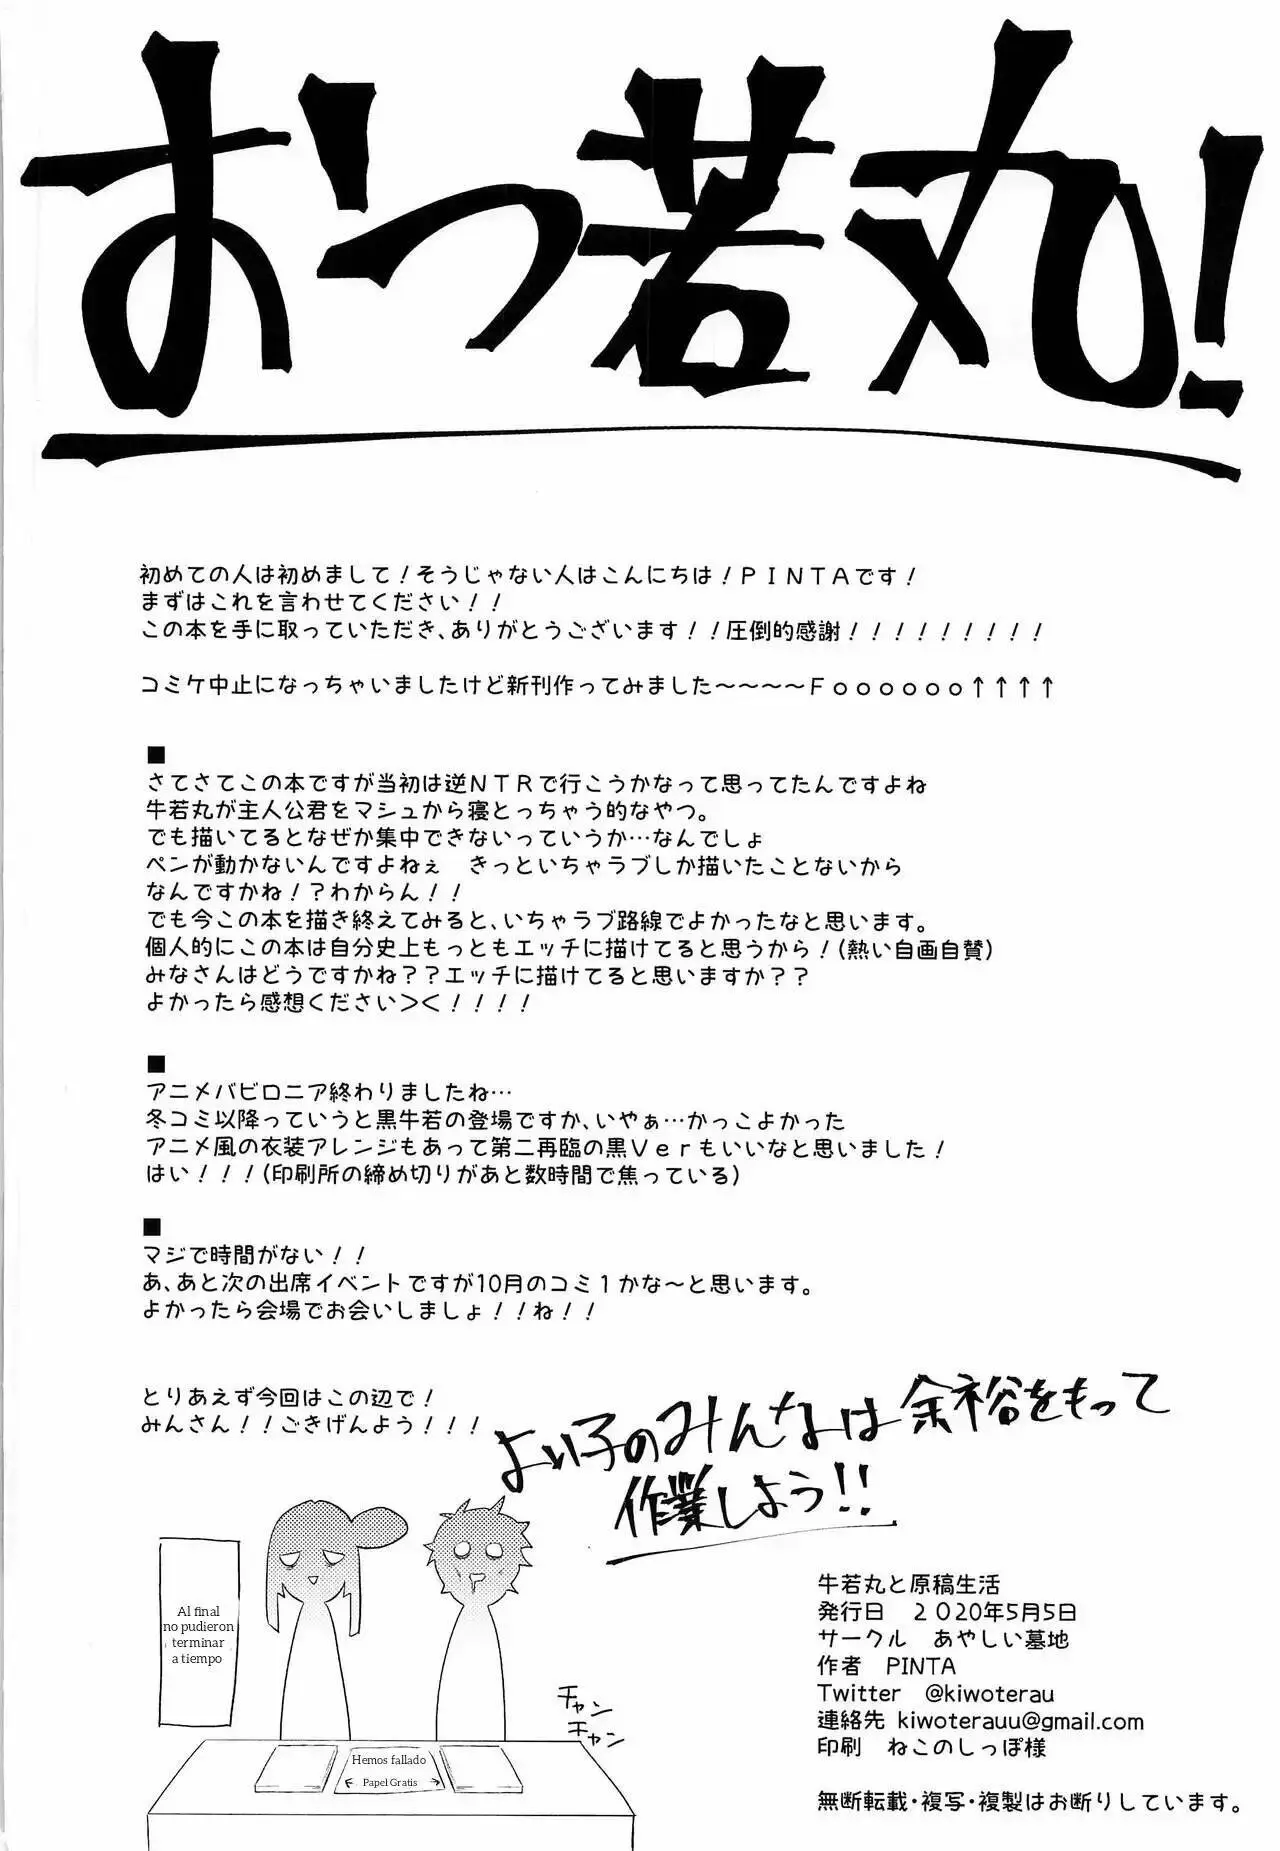 おつ若丸!
初めての人は初めまして！そうじゃない人はこんにちは！ＰＩＮＴＡです！
まずはこれを言わせてください！！
この本を手に取っていただき、ありがとうございます！！圧倒的感謝！！！！！！！！！
コミケ中止になっちゃいましたけど新刊作ってみました～～～～Ｆｏｏｏｏｏｏ↑↑↑↑
■
さてさてこの本ですが当初は逆ＮＴＲで行こうかなって思ってたんですよね
牛若丸が主人公君をマシュから寝とっちゃう的なやつ。
でも描いてるとなぜか集中できないっていうか…なんでしょ
ペンが動かないんですよねぇ　きっといちゃラブしか描いたことないから
なんですかね！？わからん！！
でも今この本を描き終えてみると、いちゃラブ路線でよかったなと思います。
個人的にこの本は自分史上もっともエッチに描けてると思うから！(熱い自画自賛)
みなさんはどうですかね？？エッチに描けてると思いますか？？
よかったら感想ください＞＜！！！！
■
アニメバビロニア終わりましたね…
冬コミ以降っていうと黒牛若の登場ですか、いやぁ…かっこよかった
アニメ風の衣装アレンジもあって第二再臨の黒Ｖｅｒもいいなと思いました！
はい！！！(印刷所の締め切りがあと数時間で焦っている)
■
マジで時間がない！！
あ、あと次の出席イベントですが10月のコミ１かな～と思います。
よかったら会場でお会いしましょ！！ね！！
とりあえず今回はこの辺で！
みんさん！！ごきげんよう！！！
よい子のみんなは余裕をもって
作業しよう!!
Al final
no pudieron
terminar
a tiempo
チャン
チャン
Hemos fallado
← Papel Gratis →
牛若丸と原稿生活
発行日　２０20年5月5日
サークル　あやしい墓地
作者　PINTA
Twitter　@kiwoterau
連絡先 kiwoterauu@gmail.com
印刷　ねこのしっぽ様
無断転載・複写・複製はお断りしています。